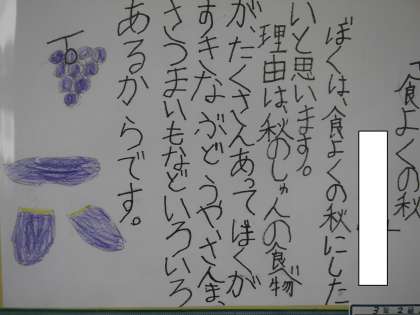 「食よくの秋
ぼくは、食よくの秋にした
いと思います。
理由は、秋のしゅんの食べ物
が、たくさんあってぼくが
すきなぶどうや、さんま、
さつまいもなどいろいろ
あるからです。